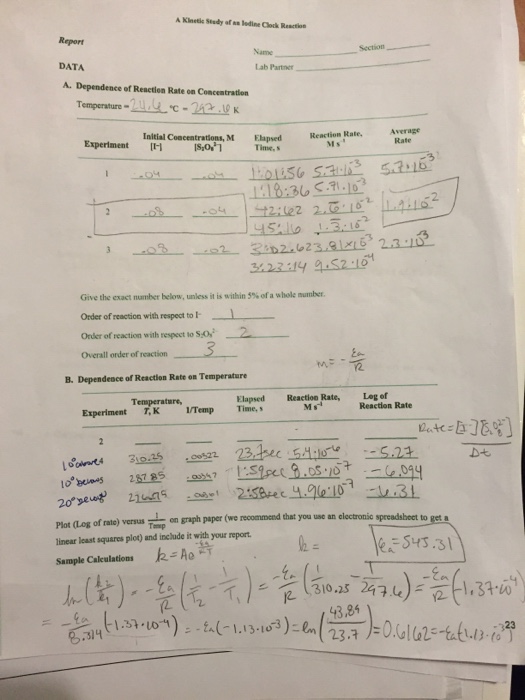 A Kinetic Study of an Iodine Clock Reaction
Report
Name Section
DATA Lab Partner
A. Dependence of Reaction Rate on Concentration
Temperature - 24.6 °C - 297.6 K
Initial Concentrations, M Elapsed Reaction Rate, Average
Experiment [I-] [S₂O₈²⁻] Time, s M s⁻¹ Rate
1 .04 .04 1:01:56 5.7·10⁻³ 5.7·10⁻³
1:18:36 5.71·10⁻³
2 .08 .04 42:62 2.6·10⁻² 1.9·10⁻²
45:16 1.3·10⁻²
3 .08 .02 3:02.62 3.81×10⁻³ 2.3·10⁻³
3:23:14 9.52·10⁻⁴
Give the exact number below, unless it is within 5% of a whole number.
Order of reaction with respect to I⁻ 1
Order of reaction with respect to S₂O₈²⁻ 2
Overall order of reaction 3
m = - Ea/R
B. Dependence of Reaction Rate on Temperature
Temperature, Elapsed Reaction Rate, Log of
Experiment T, K 1/Temp Time, s M s⁻¹ Reaction Rate
2
Rate = [I⁻][S₂O₈²⁻]
Dt
10° above 310.25 .00322 23.7sec 5.4·10⁻⁶ -5.27
10° below 287.85 .00347 1:59sec 8.05·10⁻⁷ -6.094
20° below 2:58sec 4.96·10⁻⁷ -6.31
Plot (Log of rate) versus 1/Temp on graph paper (we recommend that you use an electronic spreadsheet to get a
linear least squares plot) and include it with your report.
k = Ea = 545.31
Sample Calculations k = Ae -Ea/RT
ln(k₁/k₂) = -Ea/R (1/T₂ - 1/T₁) = -Ea/R (1/310.25 - 1/297.6) = -Ea/R (-1.37·10⁻⁴)
= -Ea/8.314 (-1.37·10⁻⁴) = -Ea(-1.13·10⁻³) = ln(43.89/23.7) = 0.6162 = -Ea(-1.13·10⁻³)
23